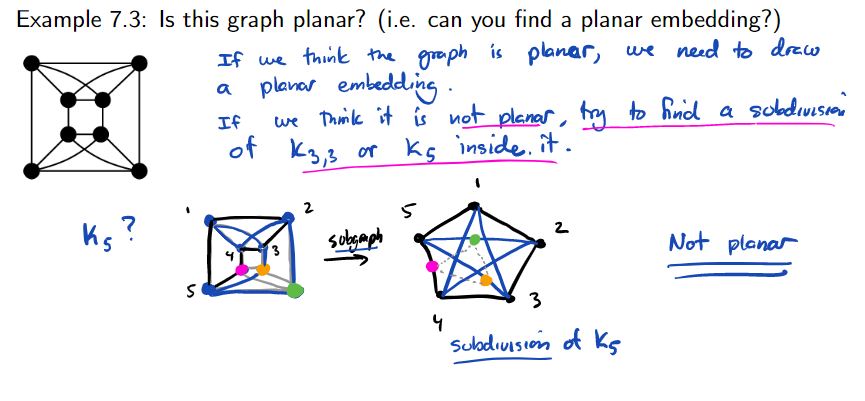 Example 7.3: Is this graph planar? (i.e. can you find a planar embedding?)
If we think the graph is planar, we need to draw
a planar embedding.
If we think it is not planar, try to find a subdivision
of K3,3 or K5 inside it.
K5?
1
2
4
3
5
subgraph
1
5
2
3
4
Not planar
subdivision of K5